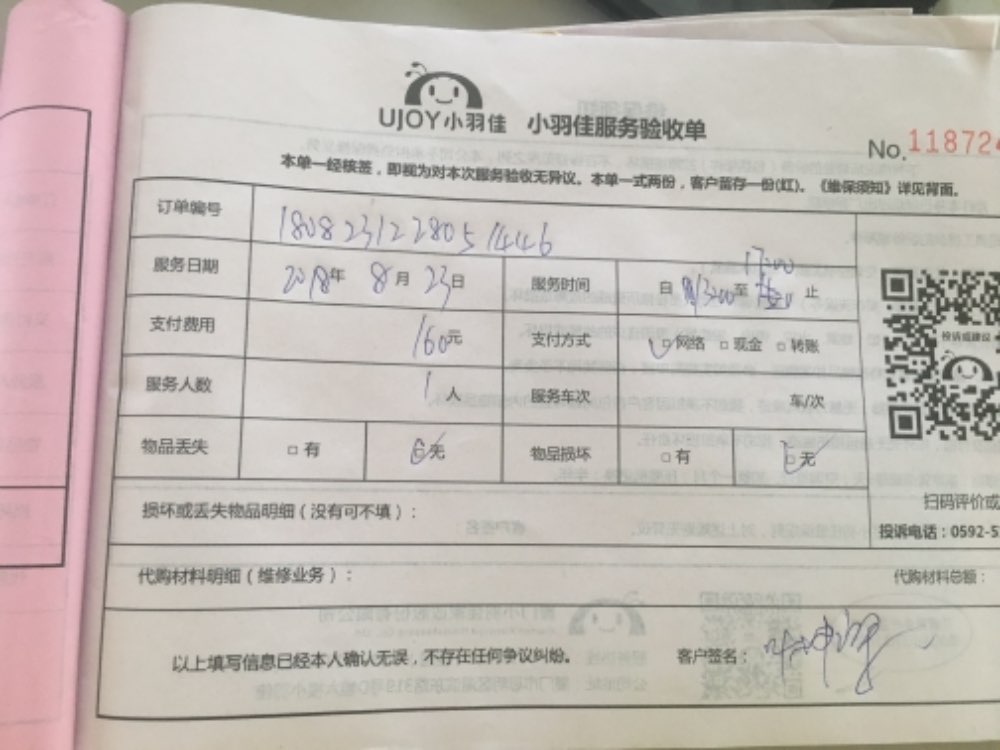 UJOY小羽佳 小羽佳服务验收单
No.118724
本单一经核签，即视为对本次服务验收无异议。本单一式两份，客户留存一份(红)。《维保须知》详见背面。
订单编号 180823122805 1446
服务日期 2018年 8月 23日 服务时间 日 至 17:00 止
支付费用 160元 支付方式 网络 现金 转账
服务人数 1人 服务车次 车/次
物品丢失 有 无 物品损坏 有 无
投诉或建议
损坏或丢失物品明细（没有可不填）：
扫码评价或
投诉电话：0592-5
代购材料明细（维修业务）： 代购材料总额：
以上填写信息已经本人确认无误，不存在任何争议纠纷。 客户签名：